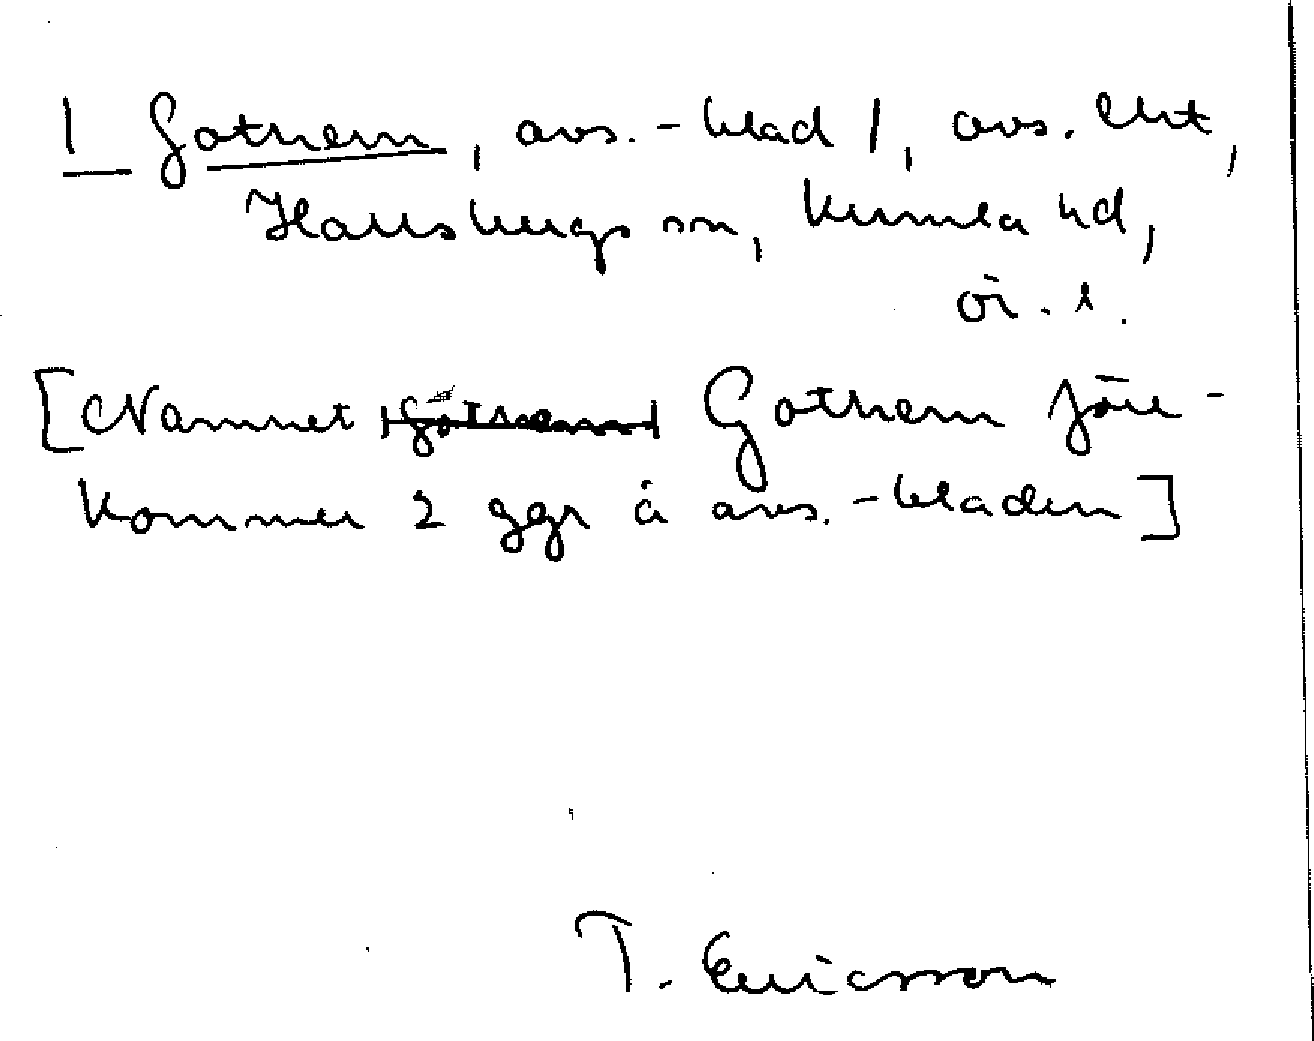 1 Gothem, avs.-blad 1, avs. Ekt,
Hallsbergs sn, Kumla hd,
ör. l.
[Namnet Gothem före-
kommer 2 ggr å avs.-bladen]
T. Ericsson